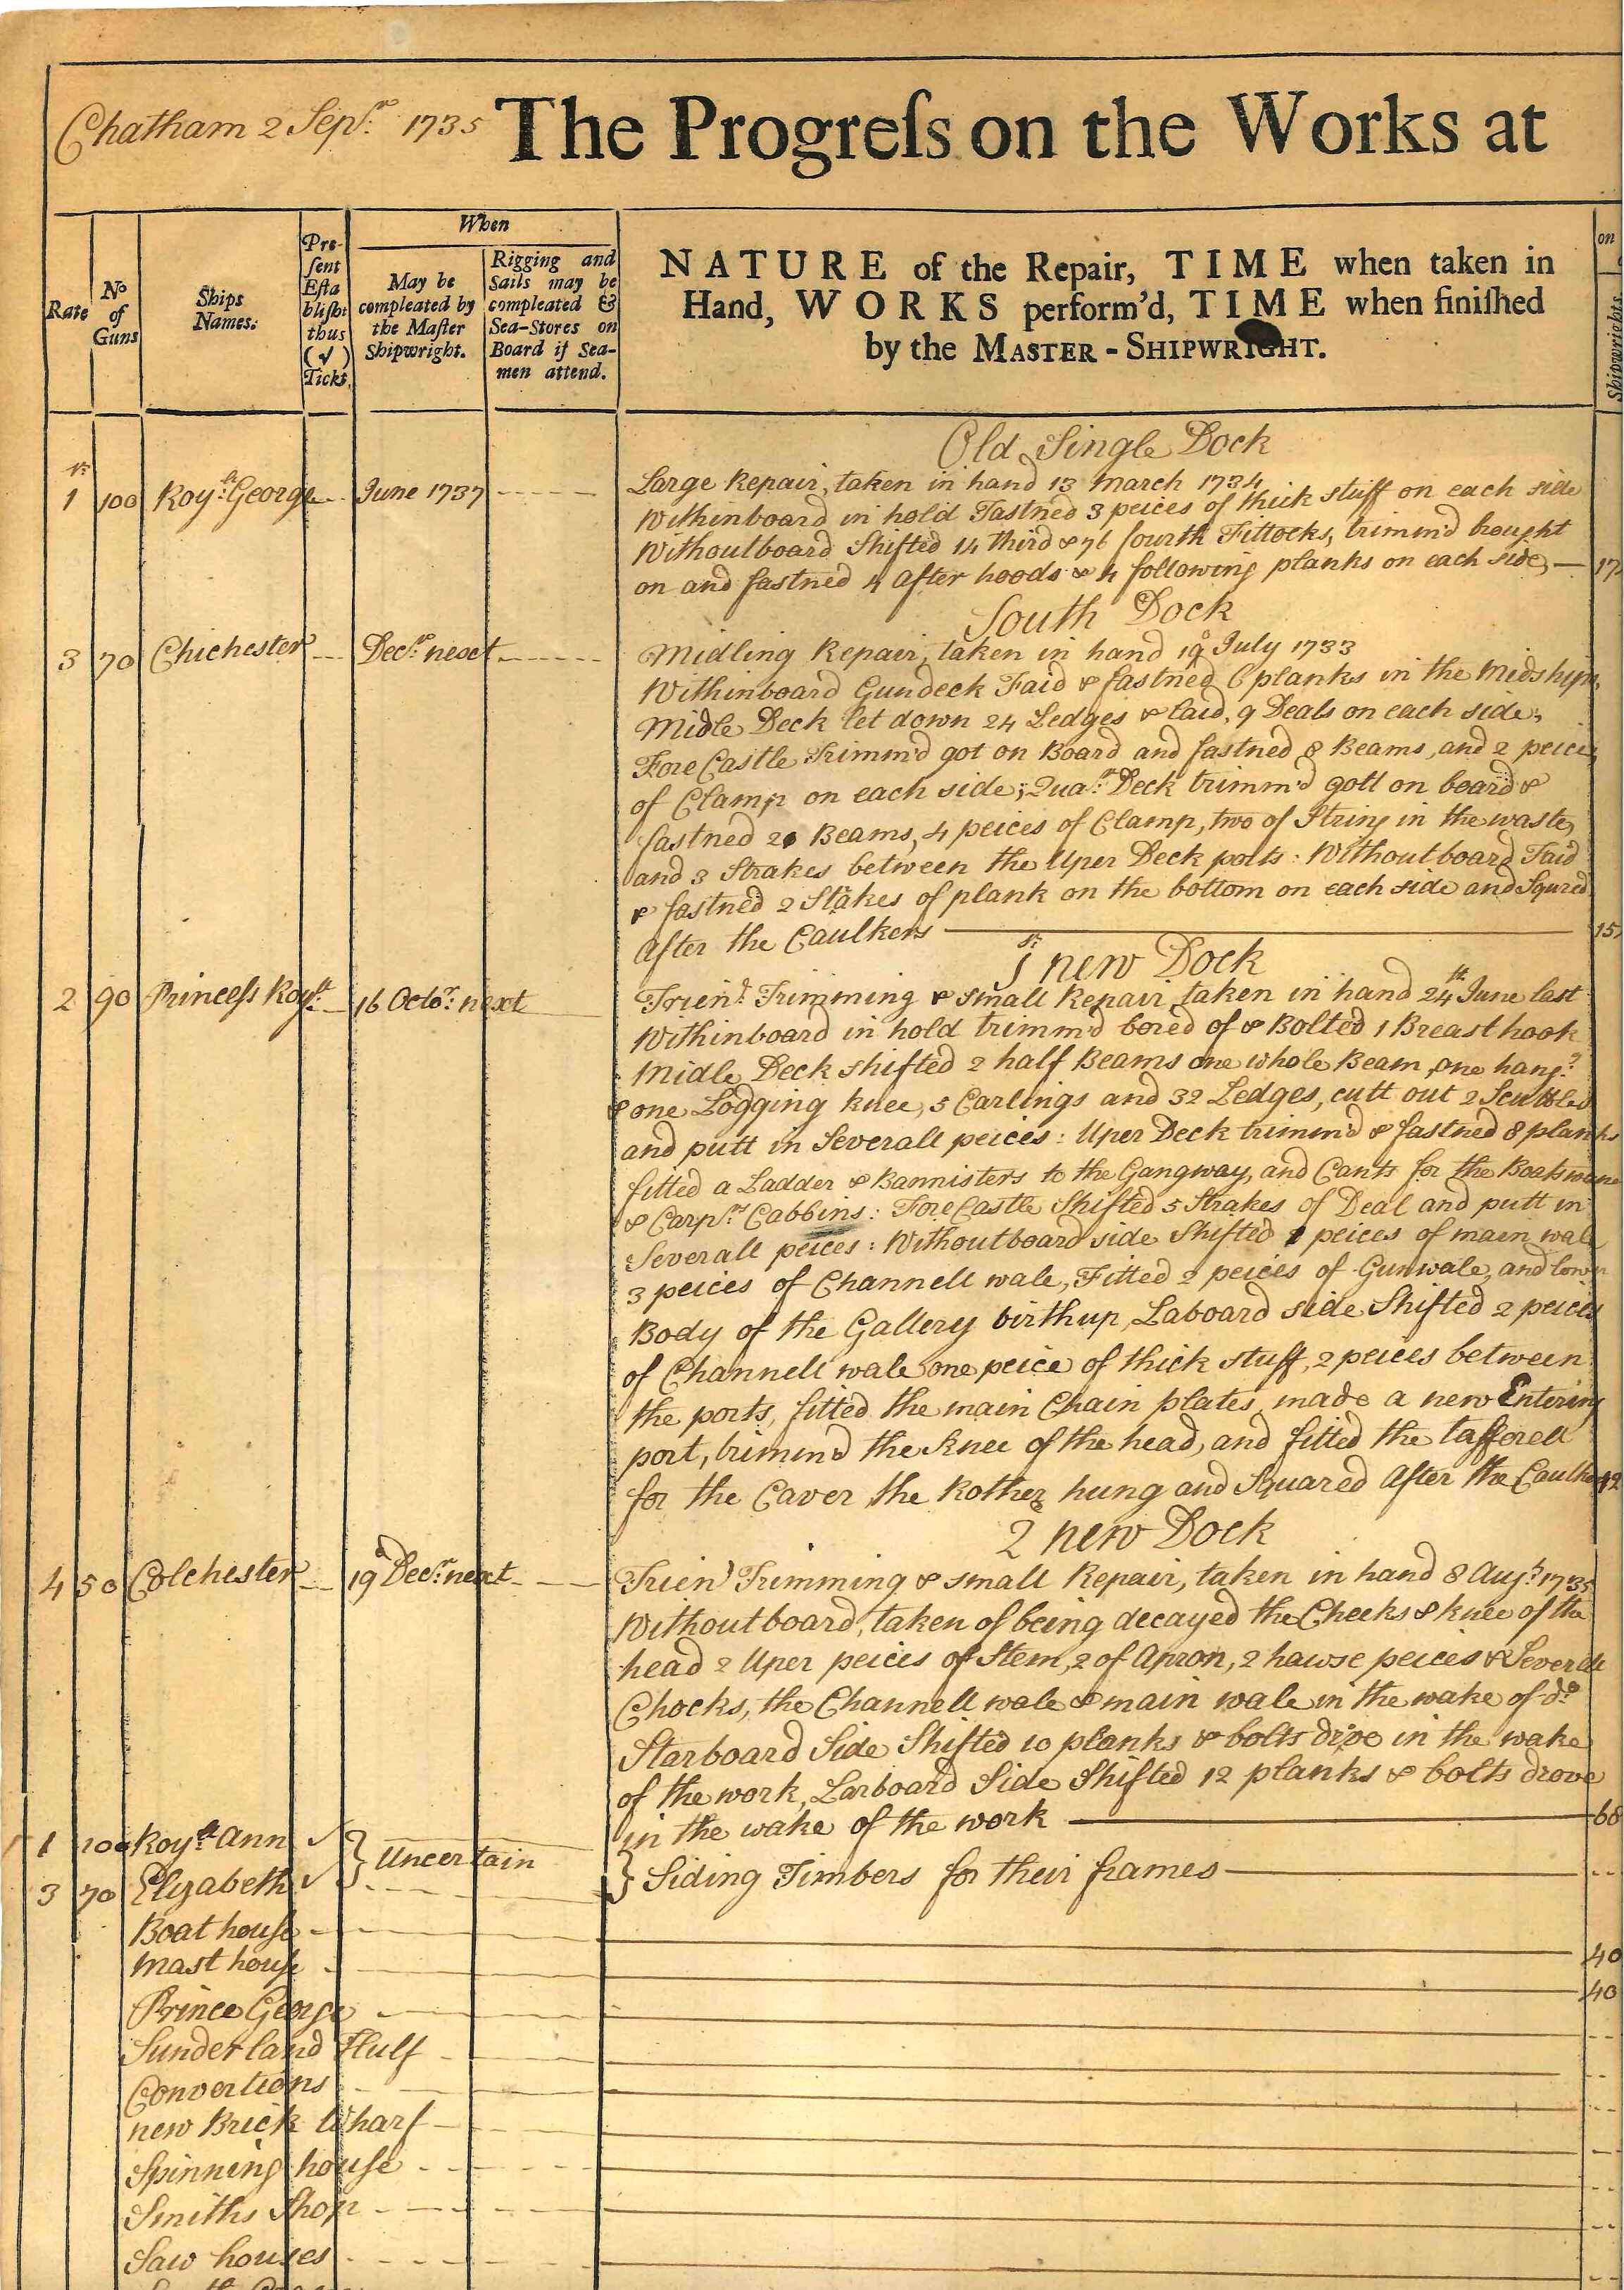 Chatham 2 Sepr. 1735 The Progreſs on the Works at
Rate
No of Guns
Ships Names.
Pre-
ſent
Eſta
bliſht
thus
(√)
Tickt.
When
May be
compleated by
the Maſter
Shipwright.
Rigging and
Sails may be
compleated &
Sea-Stores on
Board if Sea-
men attend.
NATURE of the Repair, TIME when taken in
Hand, WORKS perform'd, TIME when finiſhed
by the MASTER-SHIPWRIGHT.
on
Shipwrights.
Old Single Dock
1 100 Royll. George June 1737 Large Repair, taken in hand 13 March 1734
Withinboard in hold Fastned 3 peices of thick stuff on each side
Withoutboard Shifted 14 third & 76 fourth Fittocks, trimm'd brought
on and fastned 4 after hoods & 4 following planks on each side, 17
South Dock
3 70 Chichester Decr. next Midling Repair, taken in hand 19 July 1733
Withinboard Gundeck Faid & fastned 6 planks in the Midships
Midle Deck let down 24 Ledges & laid, 9 Deals on each side,
Fore Castle Trimm'd got on Board and fastned 8 Beams, and 2 peices
of Clamp on each side; Quar. Deck trimm'd gott on board &
fastned 20 Beams, 4 peices of Clamp, two of String in the waste,
and 3 Strakes between the Uper Deck ports: Withoutboard Faid
& fastned 2 Stakes of plank on the bottom on each side and Squred
After the Caulkers 15
1st new Dock
2 90 Princess Royll. 16 Octor. next Trienl. Trimming & small Repair taken in hand 24th June last
Withinboard in hold trimm'd bored of & Bolted 1 Breast hook
Midle Deck shifted 2 half Beams one whole Beam, one hang.g
& one Lodging knee, 5 Carlings and 32 Ledges, cutt out 2 Scuttles
and putt in Severall peices: Uper Deck trimm'd & fastned 8 planks
fitted a Ladder & Bannisters to the Gangway, and Cants for the Boatswains
& Carprs. Cabbins: Fore Castle Shifted 5 Strakes of Deal and putt in
Severall peices: Withoutboard side Shifted peices of main wale
3 peices of Channell wale, Fitted 2 peices of Gunwale, and lower
Body of the Gallery birthup, Laboard side Shifted 2 peices
of Channell wale one peice of thick stuff, 2 peices between
the ports, fitted the main Chain plates, made a new Entering
port, trimm'd the knee of the head, and fitted the tafferell
for the Carver, the Rother hung and Squared After the Caulkers 42
2 new Dock
4 50 Colchester 19 Decr. next Trienl. Trimming & small Repair, taken in hand 8 Augst. 1735
Withoutboard, taken of being decayed the Cheeks & knee of the
head 2 Uper peices of Stem, 2 of Apron, 2 hawse peices & Severall
Chocks, the Channell wale & main wale in the wake of do.
Starboard Side Shifted 10 planks & bolts drove in the wake
of the work, Larboard Side Shifted 12 planks & bolts drove
in the wake of the work 68
1 100 Royll. Ann √
3 70 Elizabeth √
} Uncertain } Siding Timbers for their frames
Boat house 40
Mast house 40
Prince George
Sunderland Hulk
Convertions
new Brick Wharf
Spinning house
Smiths Shop
Saw houses